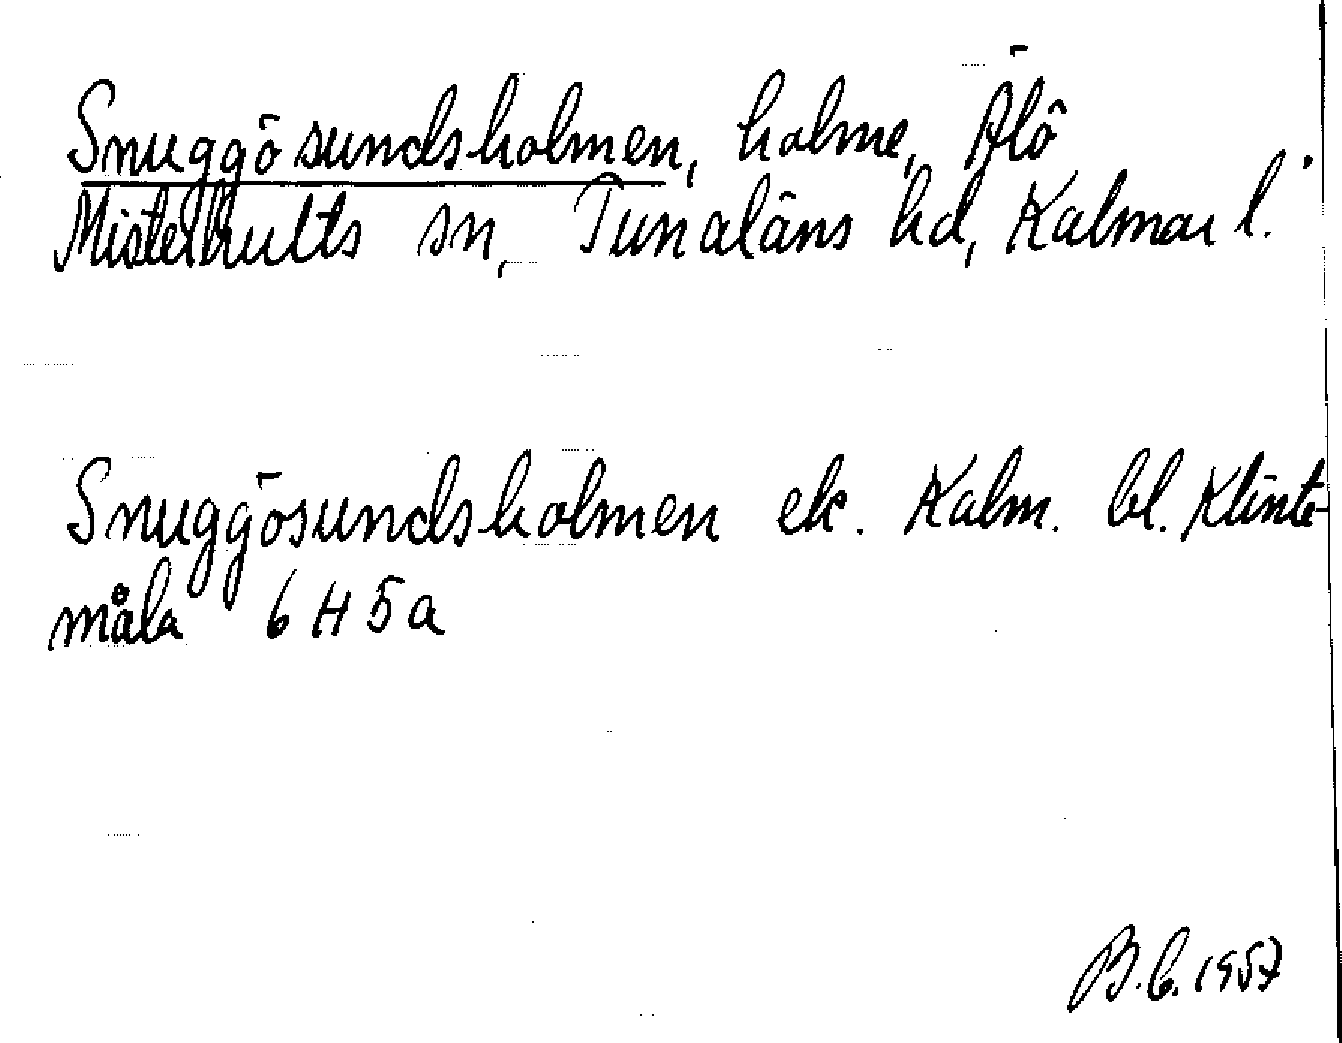 Snuggösundsholmen, holme, Älö
Misterhults sn, Tunaläns hd, Kalmar l.
Snuggösundsholmen ek. Kalm. bl. Klinte-
måla 6 H 5 a
B.C. 1957